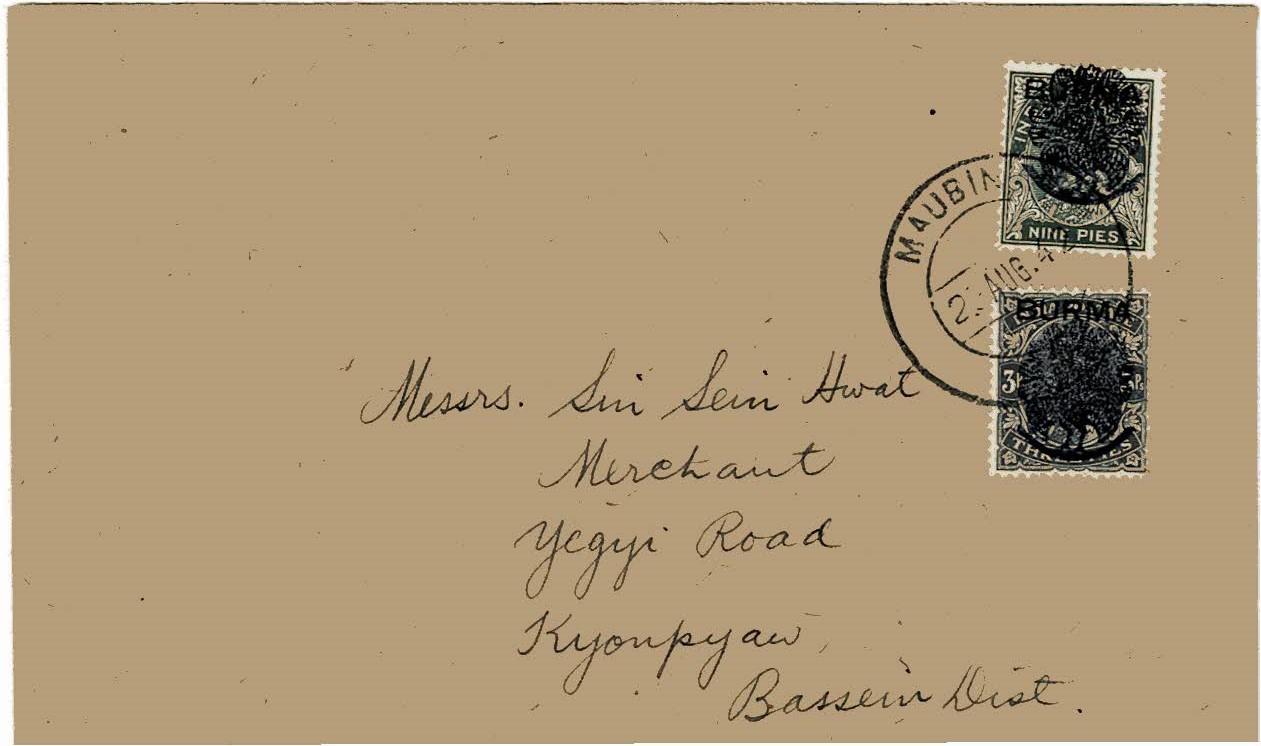 BURMA
NINE PIES
MAUBIN
AUG. 42
BURMA
3
THREE PIES
Messrs. Sin Sein Hwat
Merchant
Yegyi Road
Kyonpyaw,
Bassein Dist.